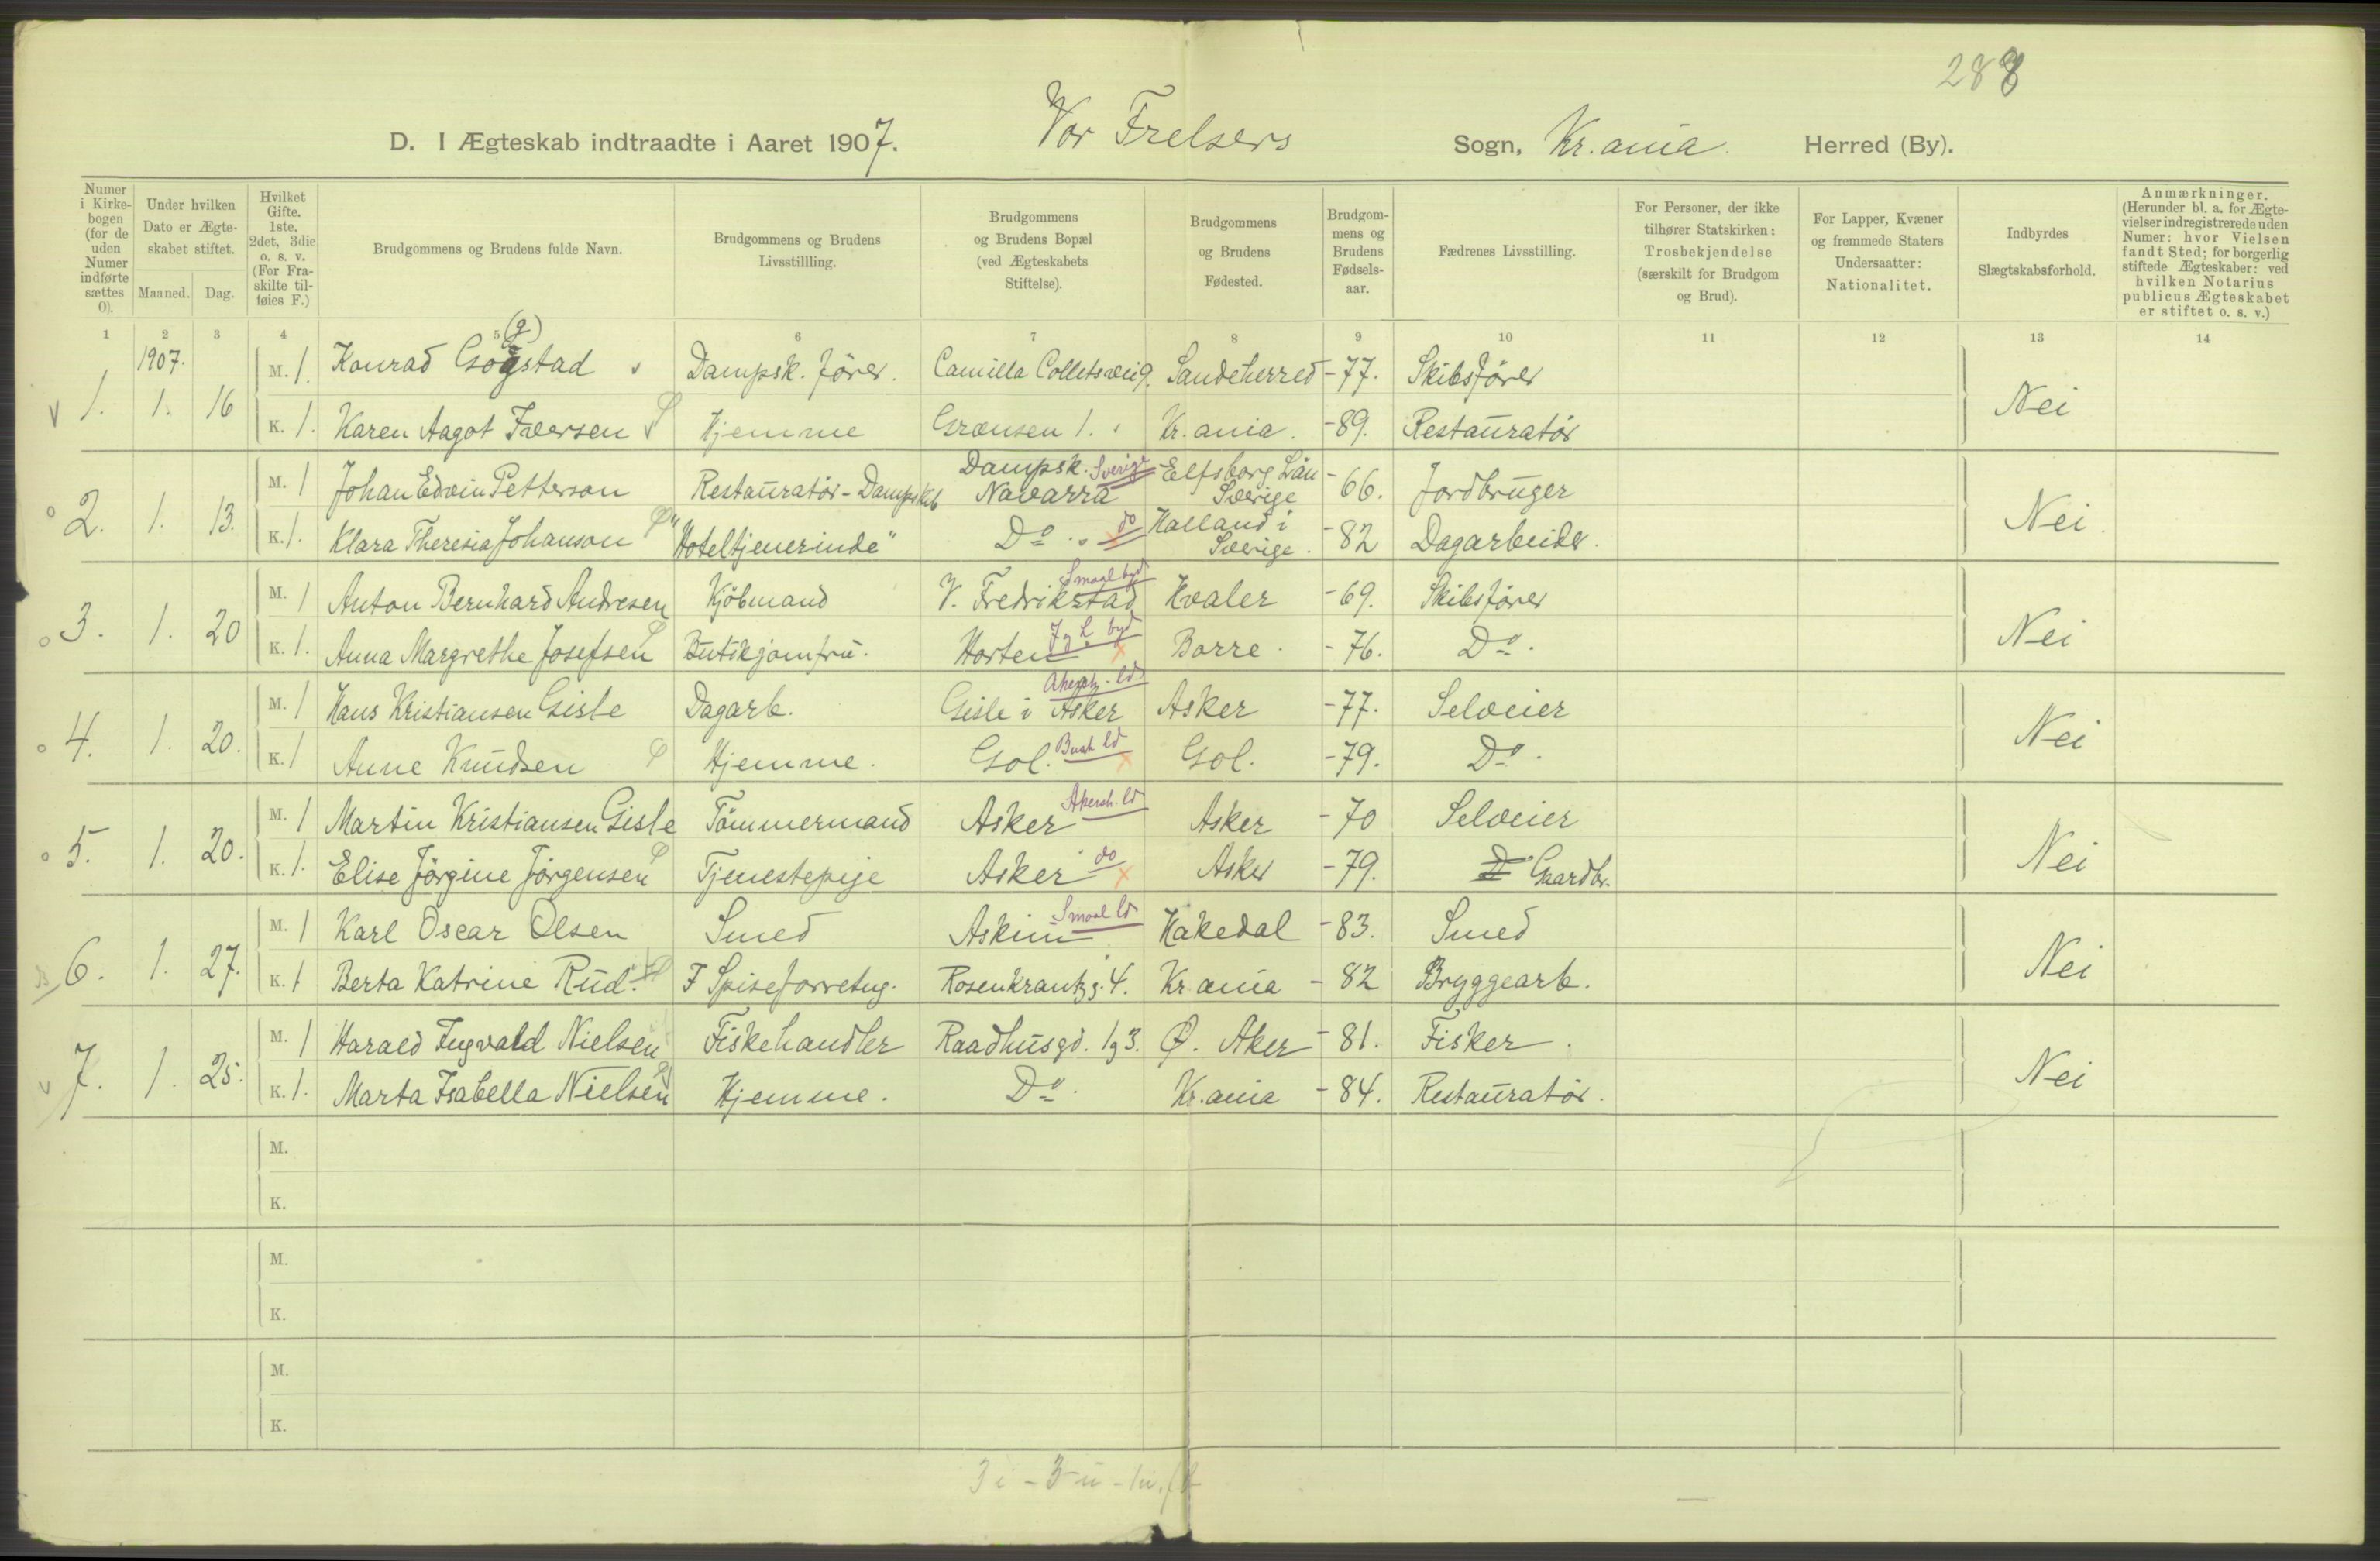 288
D. I Ægteskab indtraadte i Aaret 1907. Vor Frelsers Sogn, Kr.ania. Herred (By).
Numer i Kirkebogen (for de uden Numer indførte sættes 0).
Under hvilken Dato er Ægteskabet stiftet.
Maaned. Dag.
Hvilket Gifte. 1ste, 2det, 3die o. s. v. (For Fraskilte tilføies F.)
Brudgommens og Brudens fulde Navn.
Brudgommens og Brudens Livsstillling.
Brudgommens og Brudens Bopæl (ved Ægteskabets Stiftelse).
Brudgommens og Brudens Fødested.
Brudgommens og Brudens Fødselsaar.
Fædrenes Livsstilling.
For Personer, der ikke tilhører Statskirken: Trosbekjendelse (særskilt for Brudgom og Brud).
For Lapper, Kvæner og fremmede Staters Undersaatter: Nationalitet.
Indbyrdes Slægtskabsforhold.
Anmærkninger. (Herunder bl. a. for Ægtevielser indregistrerede uden Numer: hvor Vielsen fandt Sted; for borgerlig stiftede Ægteskaber: ved hvilken Notarius publicus Ægteskabet er stiftet o. s. v.)
1 2 3 4 5 6 7 8 9 10 11 12 13 14
1907.
(g)
1. 1. 16 M. 1. Konrad Gogstad Dampsk. fører. Camilla Colletsvei 9. Sandeherred -77. Skibsfører Nei
K. 1. Karen Aagot Iversen Hjemme Grænsen 1. Kr.ania. -89. Restauratør
2. 1. 13. M. 1 Johan Edvin Petterson Restauratør - Dampskib Dampsk. Navarra Sverige Elfsborg Län Sverige -66. Jordbruger Nei.
K. 1. Klara Theresia Johanson "Hoteltjenerinde" Do do Halland i Sverige. -82 Dagarbeider.
3. 1. 20 M. 1 Anton Bernhard Andresen Kjöbmand V. Fredrikstad Smaal byd Hvaler -69. Skibsfører Nei
K. 1. Anna Margrethe Josefsen Butikjomfru. Horten J. L. byd Borre. -76. Do.
4. 1. 20. M. 1 Hans Kristiansen Gisle Dagarb. Gisle i Asker Akersh. ld Asker -77. Selveier Nei
K. 1 Anne Knudsen Hjemme. Gol. Busk ld Gol. -79. Do.
5. 1. 20. M. 1 Martin Kristiansen Gisle Tömmermand Asker Akersh. ld Asker -70 Selveier Nei
K. 1. Elise Jörgine Jörgensen Tjenestepige Asker do Asker -79. D Gaardbr.
6. 1. 27. M. 1 Karl Oscar Olsen Smed Askim Smaal ld Hakedal -83. Smed Nei
K. 1 Berta Katrine Rud. F Spiseforretng. Rosenkrantzg. 4. Kr.ania -82 Bryggearb.
7. 1. 25. M. 1 Harald Ingvald Nielsen Fiskehandler Raadhusgd. 1g3. Ø. Aker -81. Fisker. Nei
K. 1. Marta Isabella Nielsen Hjemme. Do. Kr.ania -84. Restauratør.
M.
K.
M.
K.
M.
K.